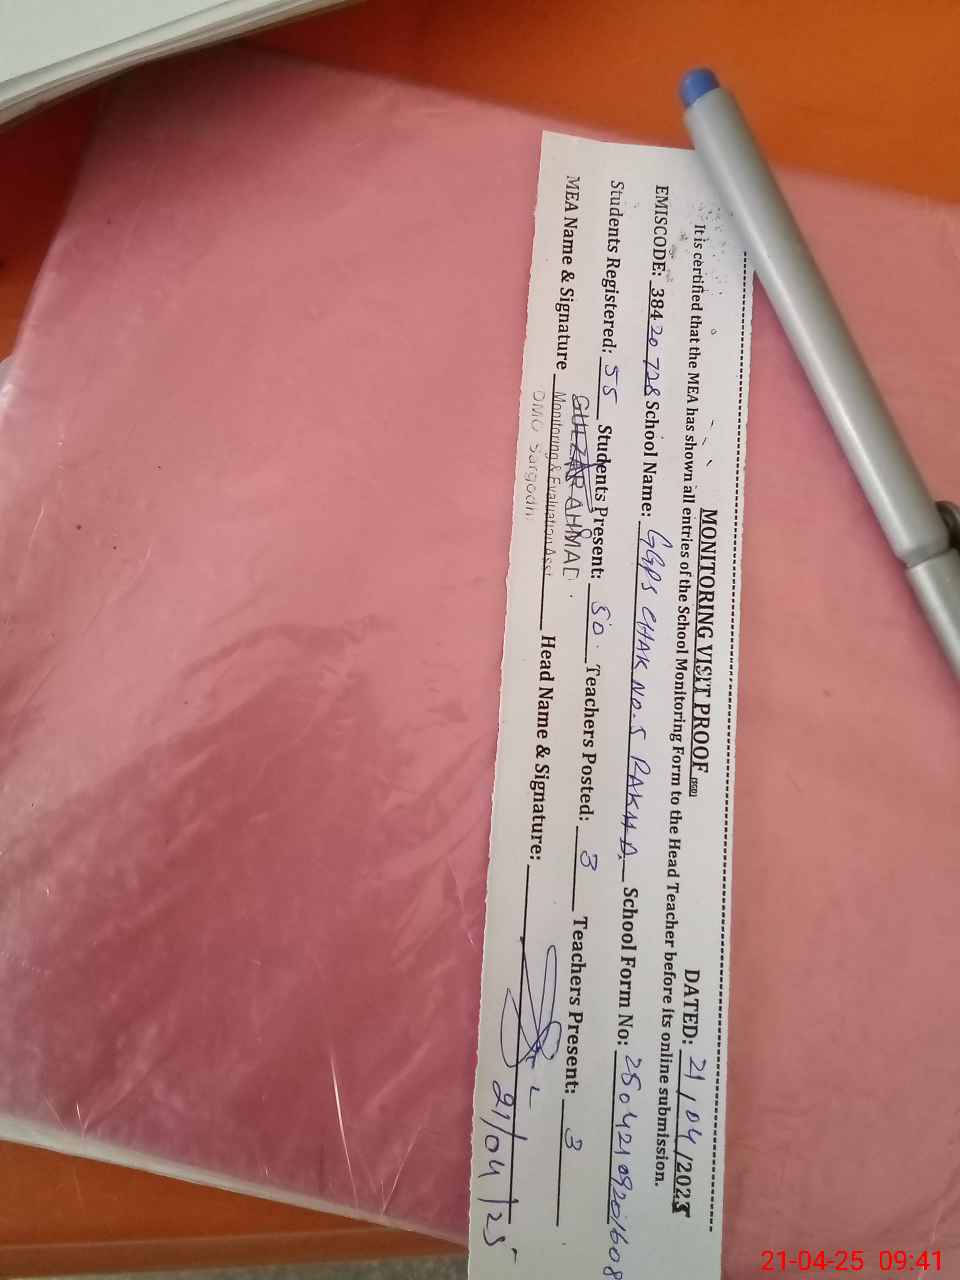 MONITORING VISIT PROOF (SGD) DATED: 21/04/2025
It is certified that the MEA has shown all entries of the School Monitoring Form to the Head Teacher before its online submission.
EMISCODE: 38420728 School Name: GGPS CHAK No.5 RAKH D. School Form No:
Students Registered: 55 Students Present: 50 Teachers Posted: 3 Teachers Present: 3
MEA Name & Signature GULZAR AHMAD Head Name & Signature: 21/04/25
Monitoring & Evaluation Asst
DMO Sargodh
21-04-25 09:41